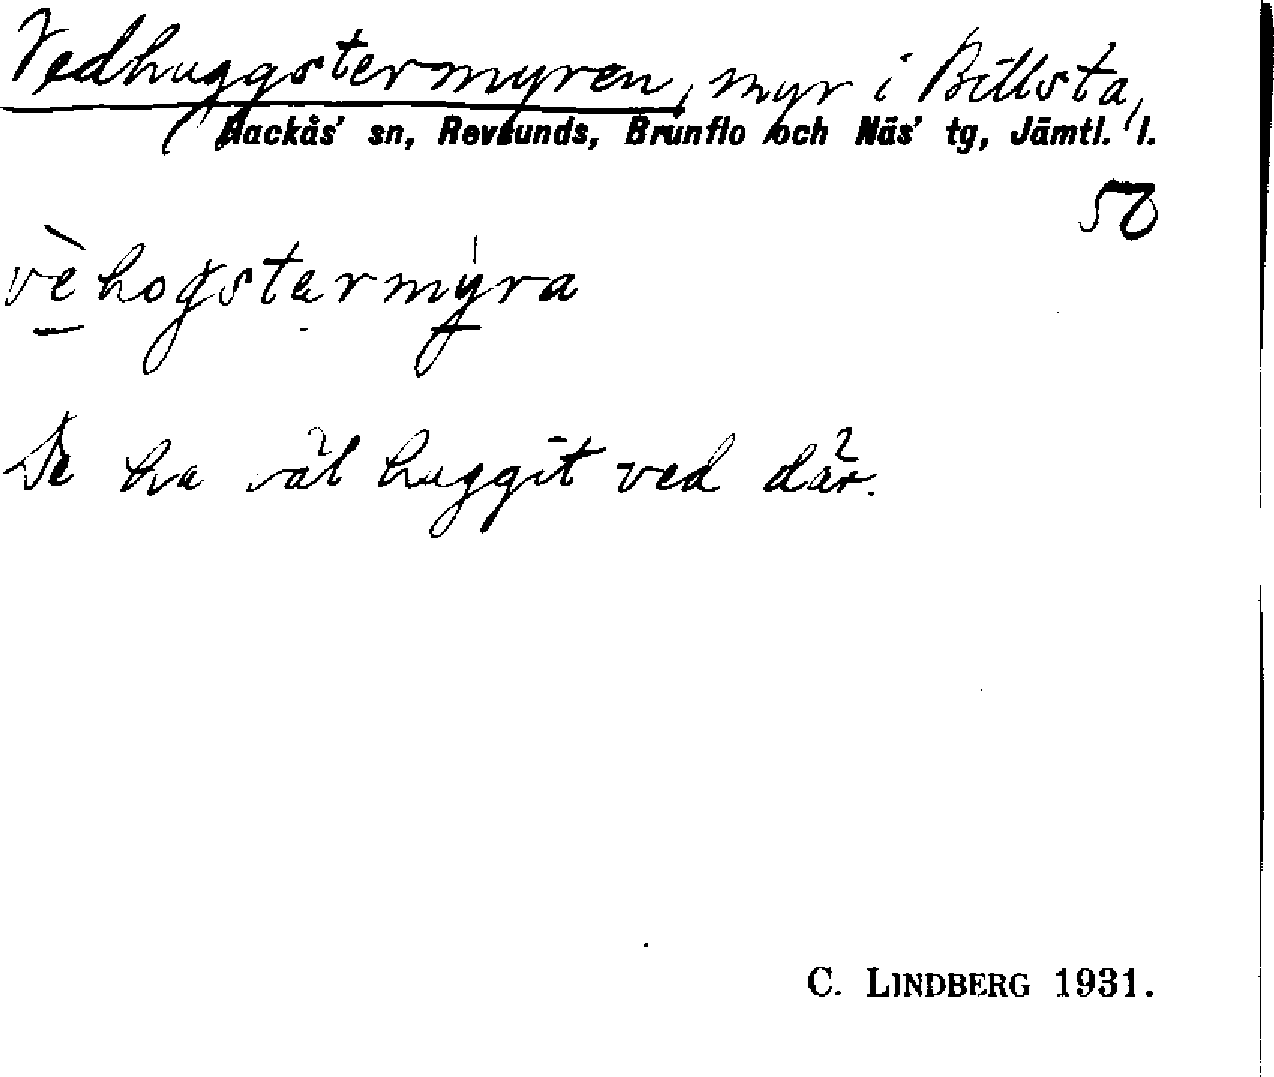 Vedhuggstermyren, myr i Billsta,
Hackås' sn, Revsunds, Brunflo och Näs' tg, Jämtl. l.
58
vèhogstermýra
De ha väl huggit ved där.
C. LINDBERG 1931.